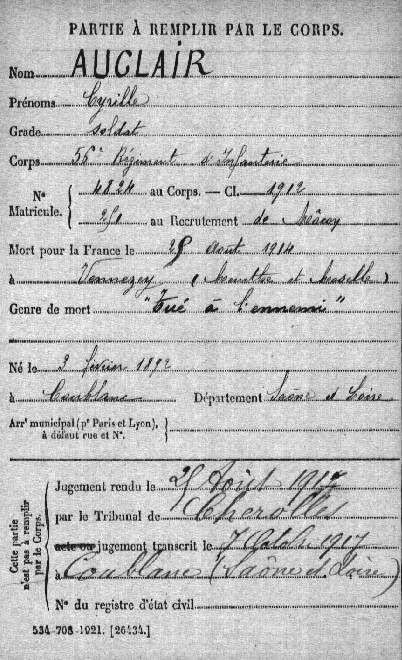 PARTIE À REMPLIR PAR LE CORPS.
Nom AUCLAIR
Prénoms Cyrille
Grade soldat
Corps 56e Régiment d'Infanterie
No Matricule. { 4824 au Corps. — Cl. 1912
251 au Recrutement de Mâcon
Mort pour la France le 25 Août 1914
à Vennezey (Meurthe et Moselle)
Genre de mort "Tué à l'ennemi"
Né le 3 février 1892
à Coublanc Département Saône et Loire
Arrt municipal (pr Paris et Lyon), à défaut rue et No. }
Cette partie n'est pas à remplir par le Corps.
Jugement rendu le 25 Août 1917
par le Tribunal de Charolles
acte ou jugement transcrit le 7 Octob 1917
à Coublanc (Saône et Loire)
No du registre d'état civil
534-708-1921. [26434.]